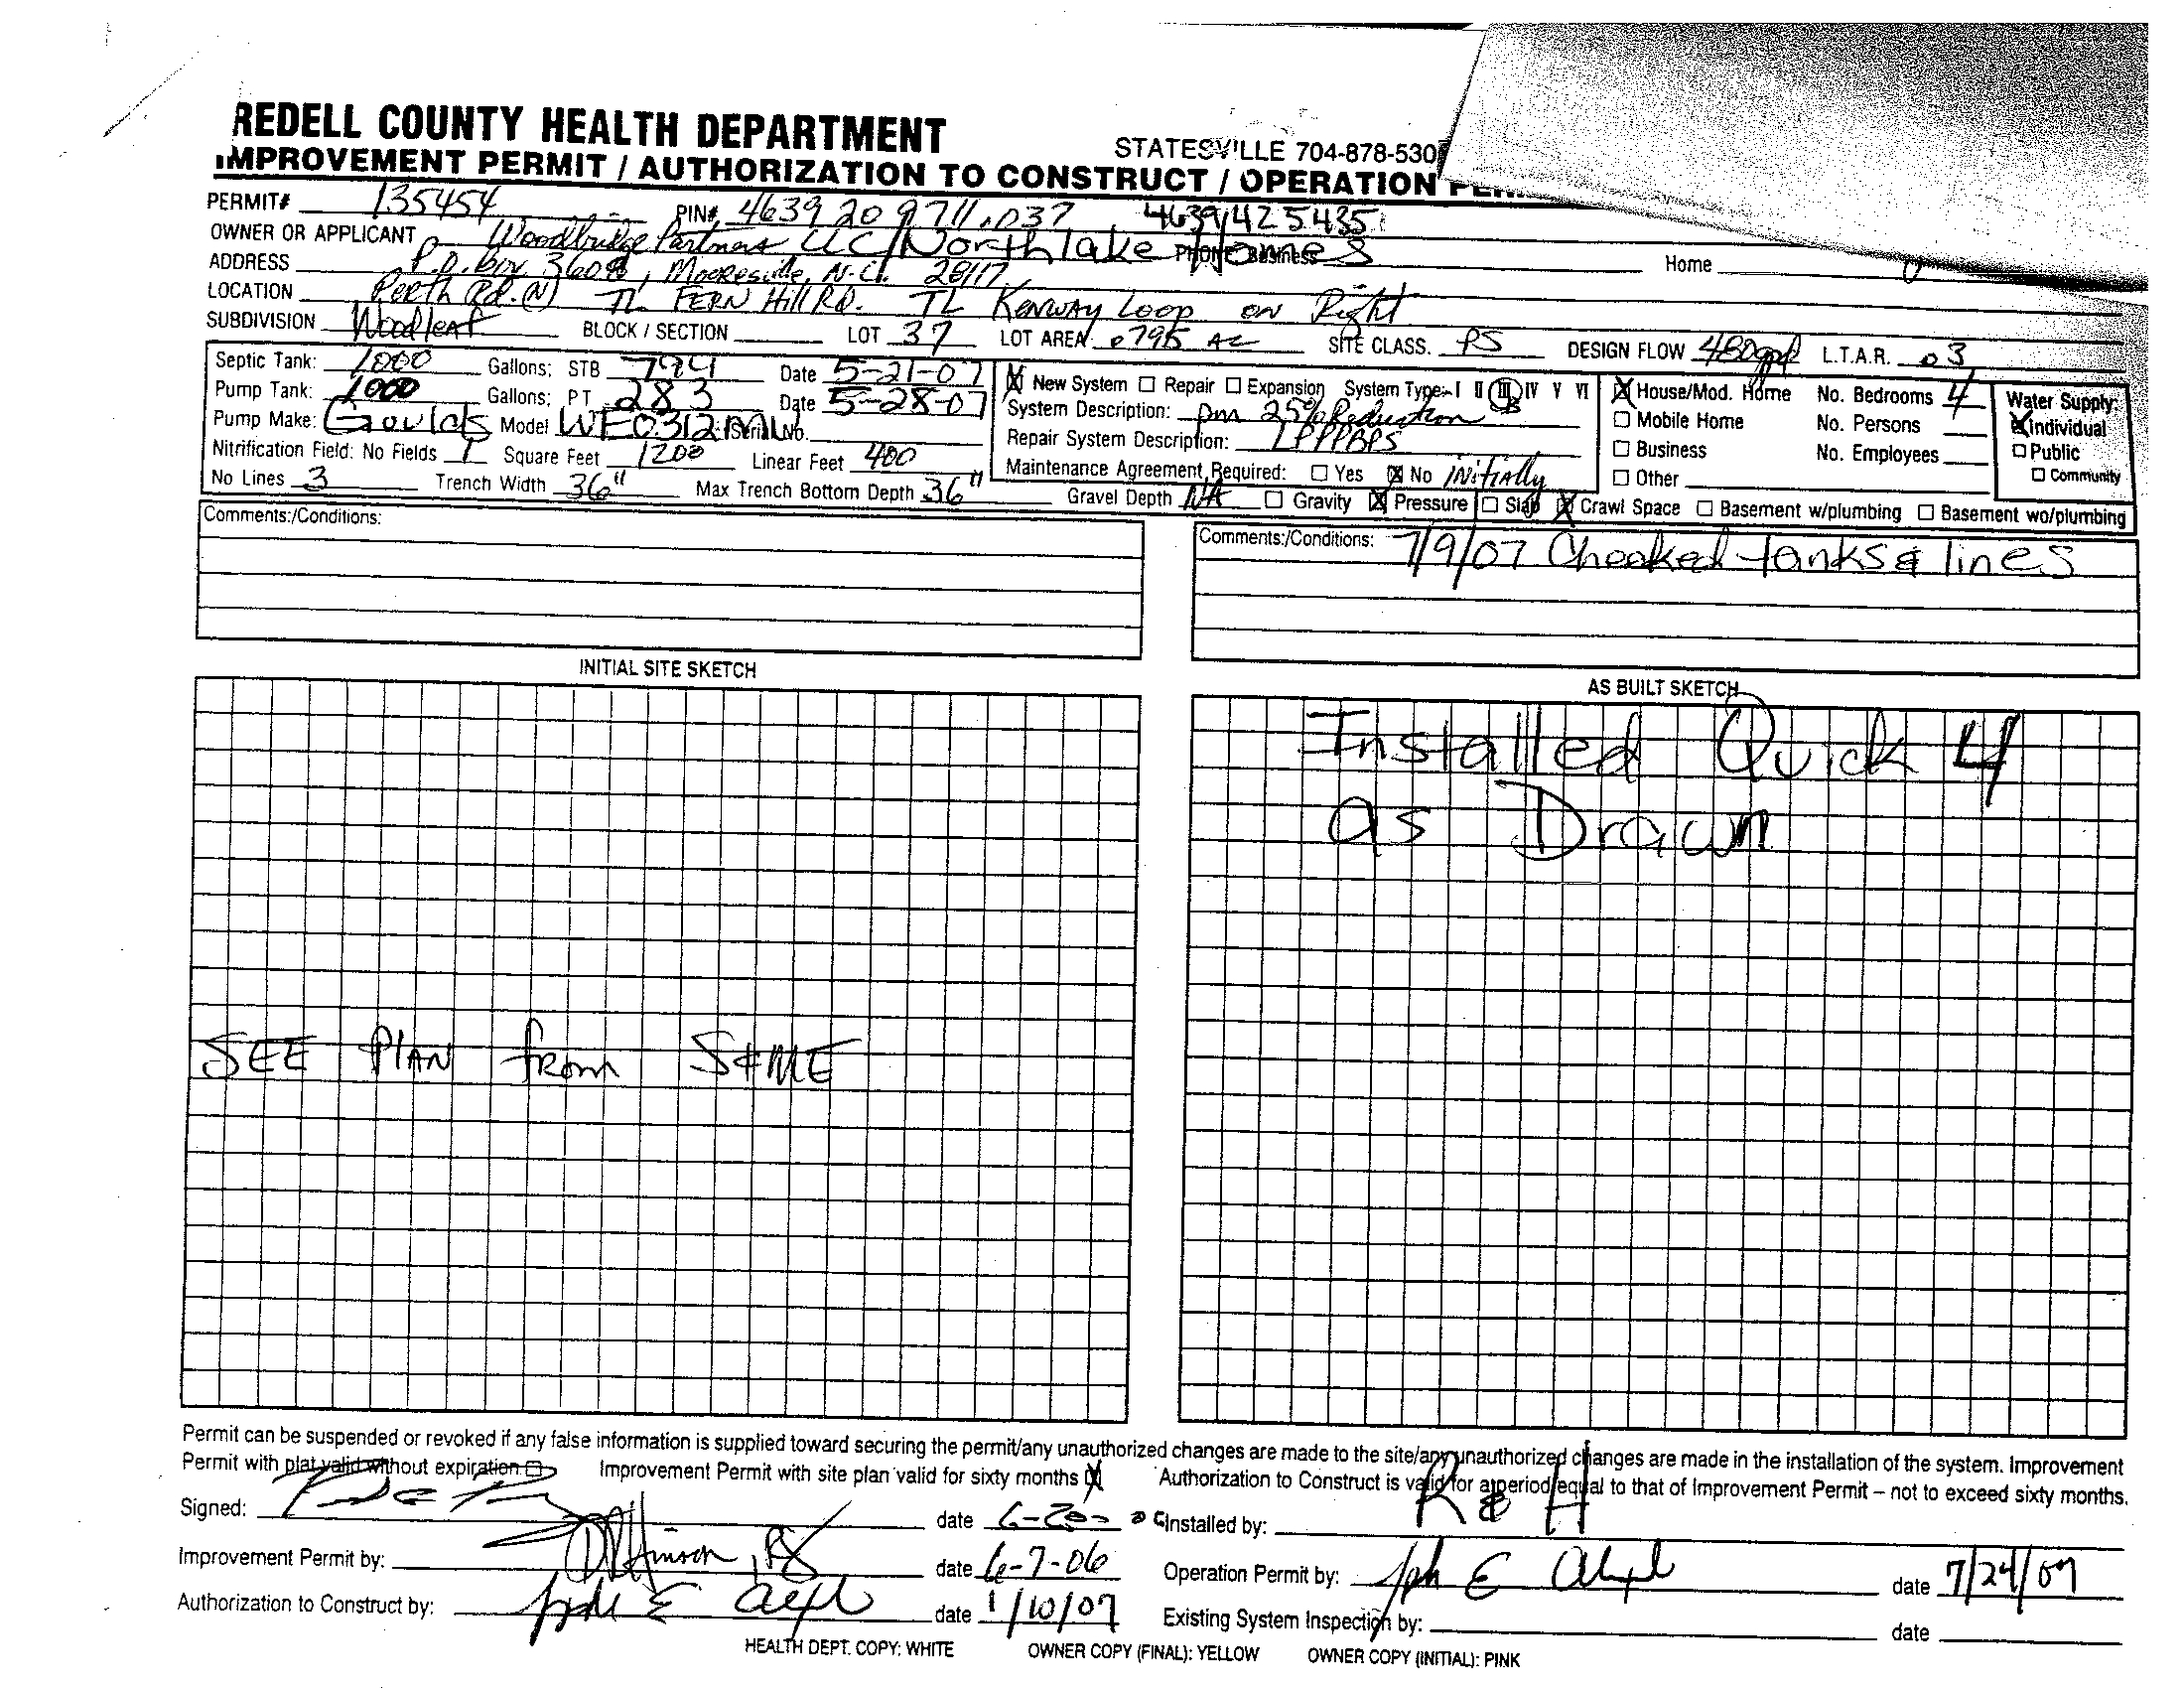 REDELL COUNTY HEALTH DEPARTMENT
STATESVILLE 704-878-530
IMPROVEMENT PERMIT / AUTHORIZATION TO CONSTRUCT / OPERATION
PERMIT# 135454 PIN# 4639 20 9711.037 4639 42 5435
OWNER OR APPLICANT Woodbridge Partners LLC / Northlake Homes PHONE: Business Home
ADDRESS P.O. box 3609, Mooresville, N.C. 28117
LOCATION Perth Rd. (N) TL FERN Hill RD. TL Kenway Loop on Right
SUBDIVISION Woodleaf BLOCK / SECTION LOT 37 LOT AREA .795 AC SITE CLASS. PS DESIGN FLOW 480gpd L.T.A.R. .3
Septic Tank: 1000 Gallons: STB 794 Date 5-21-07
Pump Tank: 1000 Gallons: PT 283 Date 5-28-07
Pump Make: Goulds Model WE0312ML Serial No.
Nitrification Field: No Fields 1 Square Feet 1200 Linear Feet 400
No Lines 3 Trench Width 36" Max Trench Bottom Depth 36" Gravel Depth NA Gravity Pressure Slab Crawl Space Basement w/plumbing Basement wo/plumbing
New System Repair Expansion System Type: I II III B IV V VI
System Description: pm 25% Reduction
Repair System Description: LPPPBPS
Maintenance Agreement Required: Yes No INitially
House/Mod. Home No. Bedrooms 4
Mobile Home No. Persons
Business No. Employees
Other
Water Supply:
Individual
Public
Community
Comments:/Conditions:
Comments:/Conditions: 7/9/07 Checked tanks & lines
INITIAL SITE SKETCH
SEE PLAN from S&ME
AS BUILT SKETCH
Installed Quick 4
as Drawn
Permit can be suspended or revoked if any false information is supplied toward securing the permit/any unauthorized changes are made to the site/any unauthorized changes are made in the installation of the system. Improvement
Permit with plat valid without expiration Improvement Permit with site plan valid for sixty months Authorization to Construct is valid for a period equal to that of Improvement Permit – not to exceed sixty months.
Signed: date Installed by: R & H
Improvement Permit by: date 6-7-06 Operation Permit by: date 7/24/07
Authorization to Construct by: date 1/10/07 Existing System Inspection by: date
HEALTH DEPT. COPY: WHITE OWNER COPY (FINAL): YELLOW OWNER COPY (INITIAL): PINK